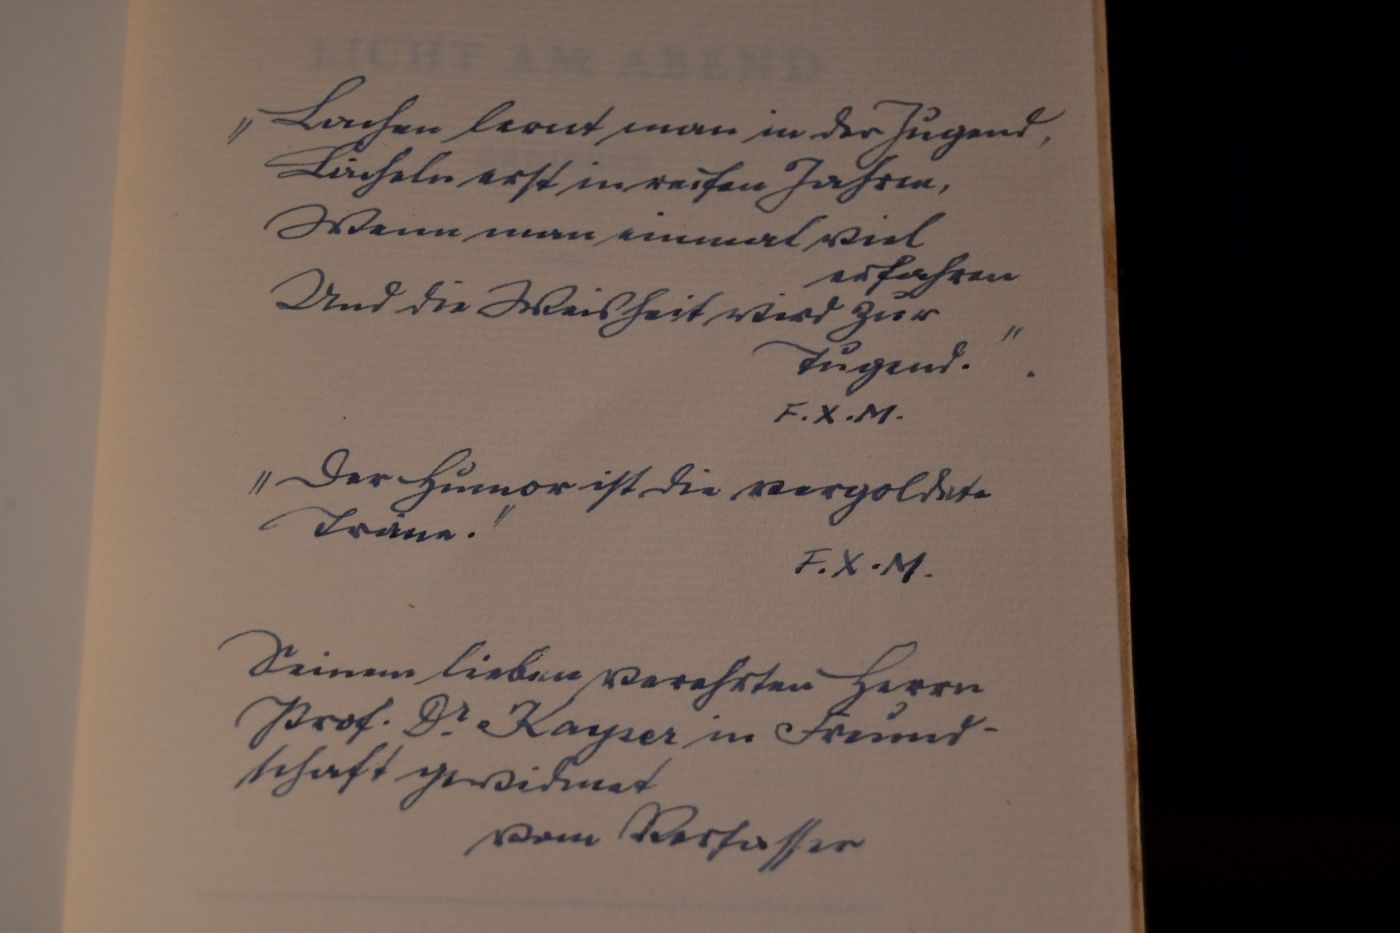 LICHT AM ABEND
„Lachen lernt man in der Jugend,
Lächeln erst in reifen Jahren,
Wenn man einmal viel
erfahren
Und die Weisheit wird zur
Tugend.".
F.X.M.
„Der Humor ist die vergoldete
Träne."
F.X.M.
Seinem lieben verehrten Herrn
Prof. Dr. Kayser in Freund-
schaft gewidmet
vom Verfasser